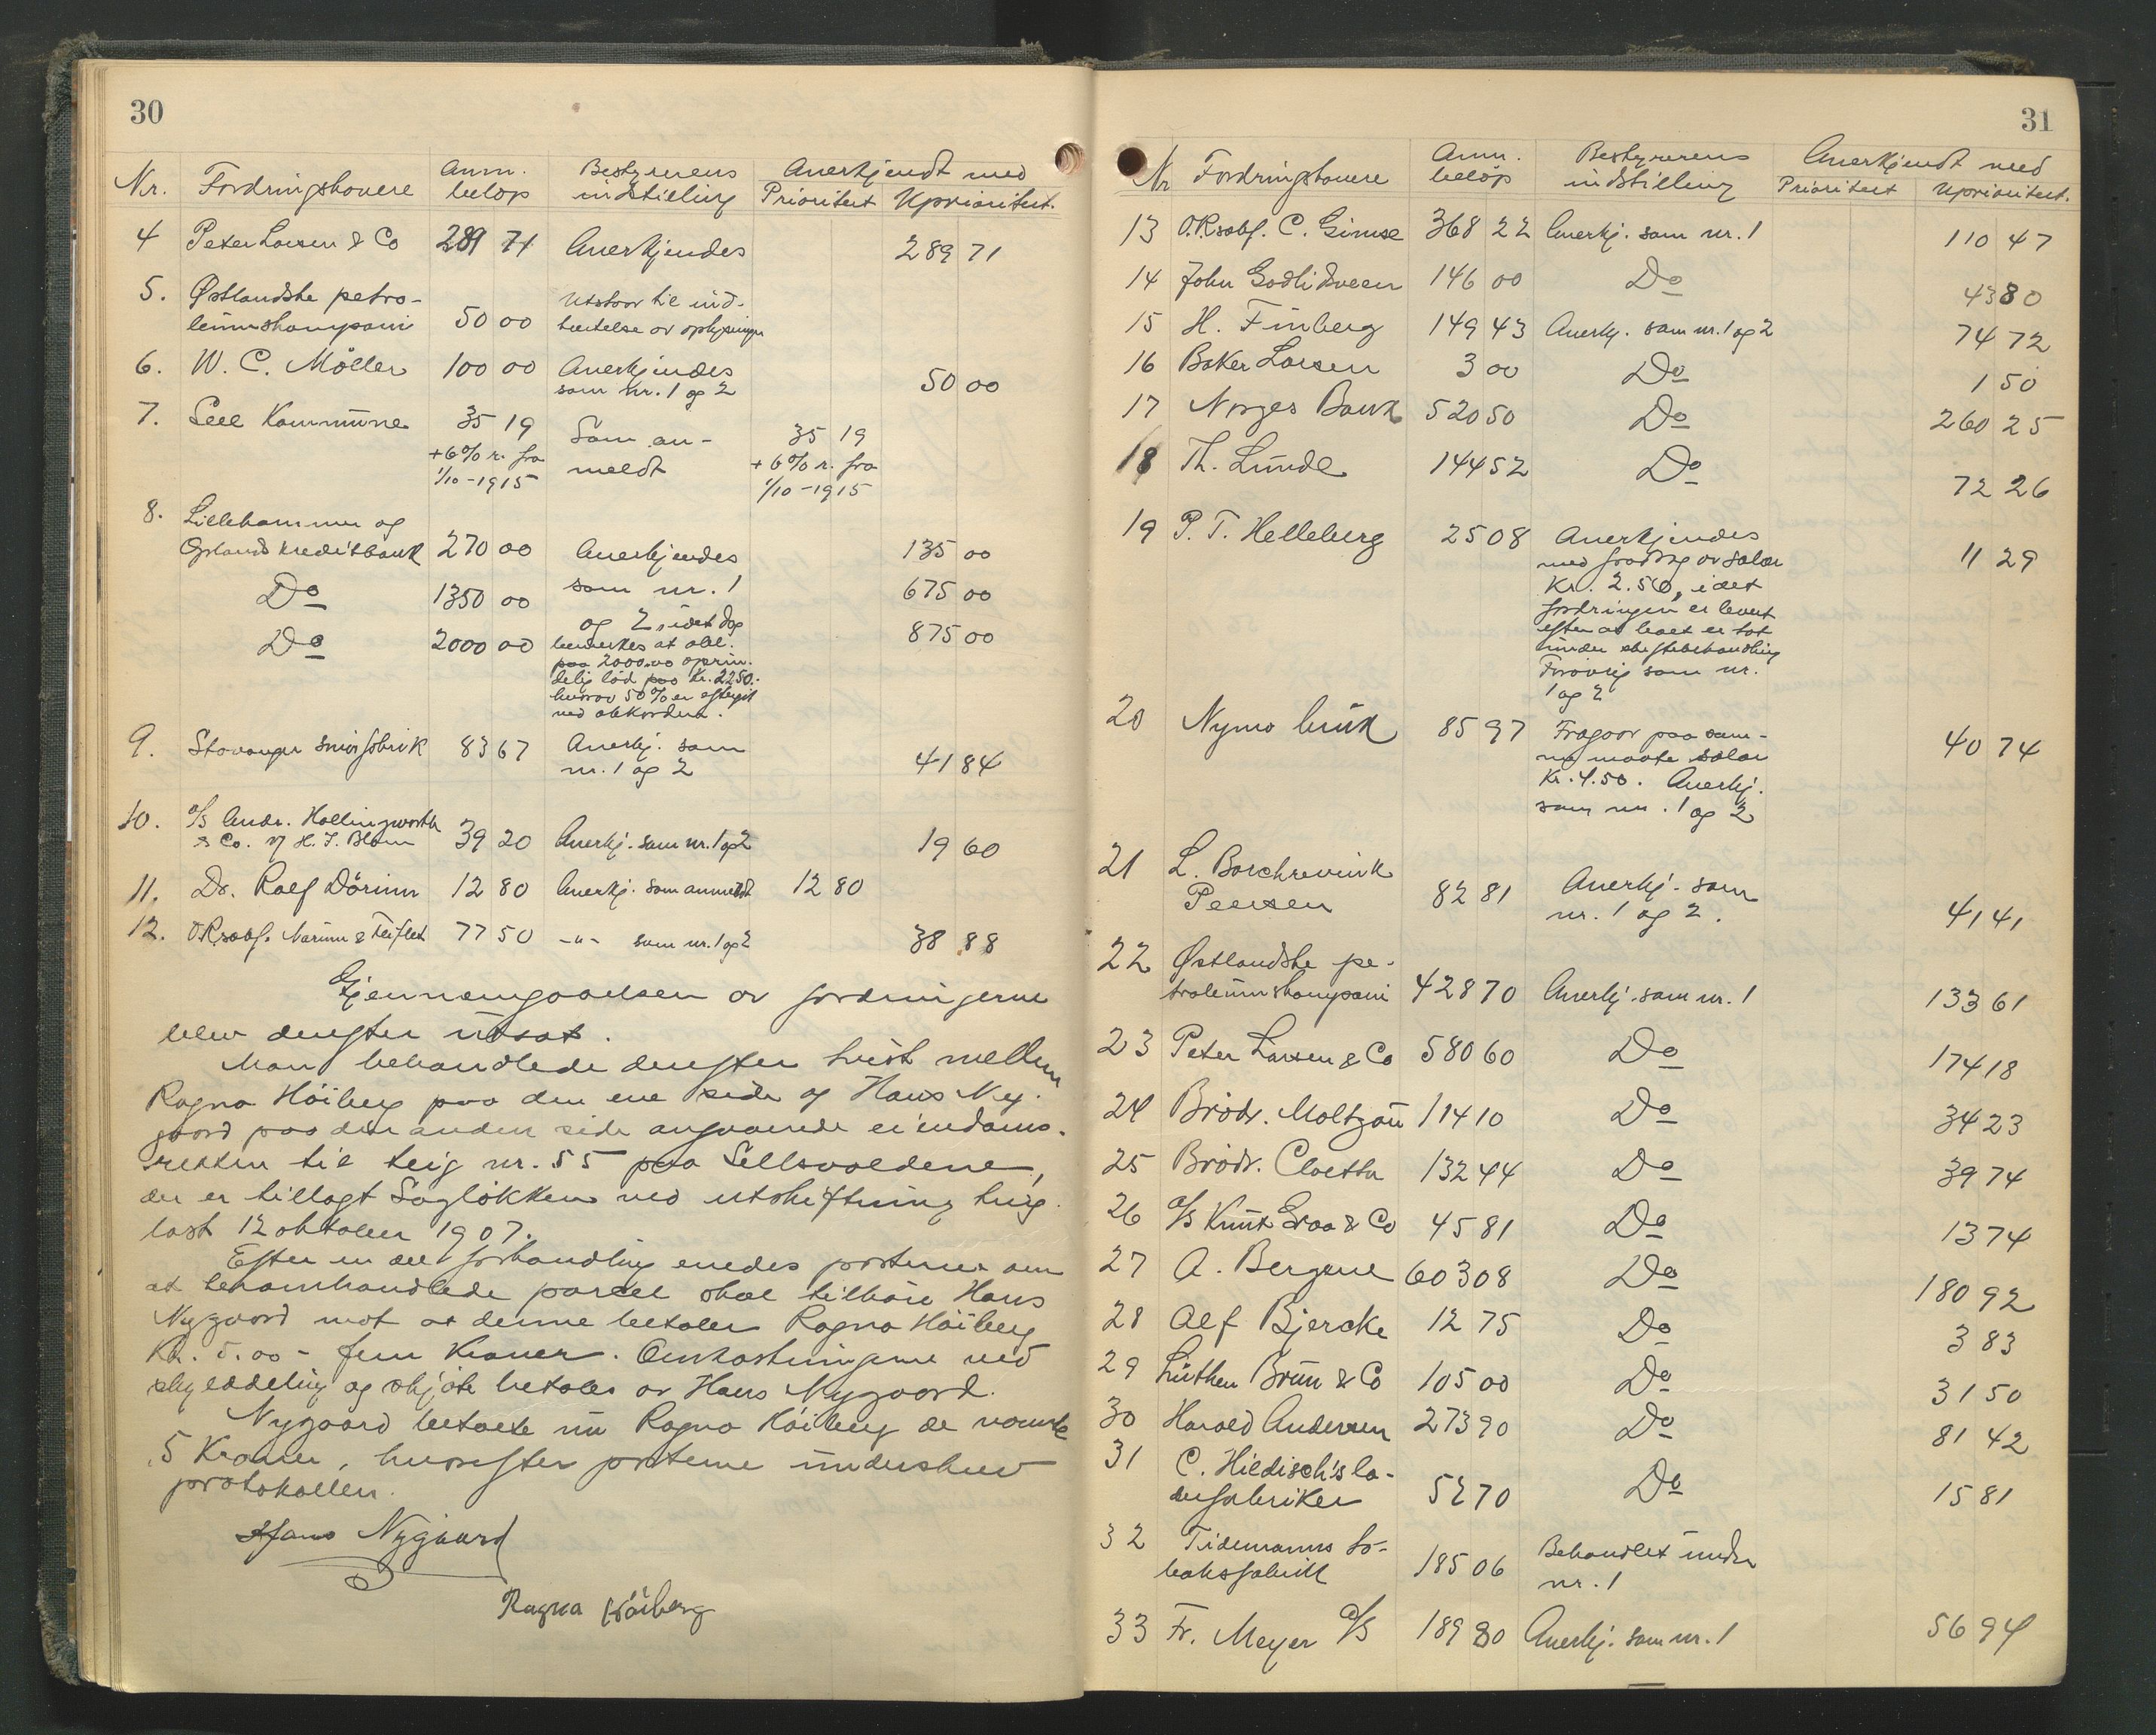 30
Nr. Fordringshavere Anm. beløp Bestyrerens indstilling Anerkjendt med Prioritert Uprioritert.
4 Peter Larsen & Co 289 71 Anerkjendes 289 71
5. Østlandske petro- Utstaar til ind-
leumskompani 50 00 hentelse av oplysninger
6. W. C. Möller 100 00 Anerkjendes 50 00
som nr. 1 og 2
7. Sell Kommune 35 19 Som an- 35 19
+ 6% r. fra meldt + 6% r. fra
1/10 - 1915 1/10 - 1915
8. Lillehammer og
Oplands kreditbank 270 00 Anerkjendes 135 00
Do 1350 00 som nr. 1 675 00
og 2, idet dog
Do 2000 00 bemerkes at obl. 875 00
paa 2000.00 oprin-
delig lød paa kr. 2250.-
hvorav 50% er eftergit
ved akkorden.
9. Stavanger smørfabrik 83 67 Anerkj. som 41 84
nr. 1 og 2
10. a/s Andr. Hollingworth
& Co. v/ H. J. Blom 39 20 Anerkj. som nr. 1 og 2 19 60
11. Dr. Rolf Dörum 12 80 Anerkj. som anmeldt 12 80
12. O.R.sakf. Narum & 77 50 -"- som nr. 1 og 2 38 88
Gjennemgaaelsen av fordringerne
blev derefter utsat.
Man behandlede derefter tvist mellem
Ragna Höiberg paa den ene side og Hans Ny-
gaard paa den anden side angaaende eiendoms-
retten til teig nr. 55 paa Sellsvoldene,
der er tillagt Sagløkken ved utskiftning tingl.
last 12 oktober 1907.
Efter en del forhandling enedes parterne om
at omhandlede parcel skal tilhöre Hans
Nygaard mot at denne betaler Ragna Höiberg
Kr. 5.00 - fem Kroner. Omkostningerne ved
skylddeling og skjöte betales av Hans Nygaard.
Nygaard betalte nu Ragna Höiberg de nævnte
5 Kroner, hvorefter parterne underskrev
protokollen.
Hans Nygaard
Ragna Höiberg
31
Nr Fordringshavere Anm. beløp Bestyrerens indstilling Anerkjendt med Prioritert Uprioritert.
13 O.R.sakf. C. Gimse 368 22 Anerkj. som nr. 1 110 47
14 John Godlidveen 146 00 Do 43 80
15 H. Finberg 149 43 Anerkj. som nr. 1 og 2 74 72
16 Baker Larsen 3 00 Do 1 50
17 Norges Bank 520 50 Do 260 25
18 Th. Lunde 144 52 Do 72 26
19 P. T. Helleberg 25 08 Anerkjendes 11 29
med fradrag av salær
Kr. 2.50, idet
fordringen er levert
efter at boet er tat
under skiftebehandling
Forøvrig som nr.
1 og 2
20 Nymo bruk 85 97 Fragaar paa sam- 40 74
me maate salær
Kr. 4.50. Anerkj.
som nr. 1 og 2
21 L. Borchrevink
Peersen 82 81 Anerkj. som 41 41
nr. 1 og 2.
22 Østlandske pe-
troleumskompani 428 70 Anerkj. som nr. 1 133 61
23 Peter Larsen & Co 580 60 Do 174 18
24 Brödr. Moltzau 114 10 Do 34 23
25 Brödr. Cloetta 132 44 Do 39 74
26 a/s Knut Graa & Co 45 81 Do 13 74
27 A. Bergene 603 08 Do 180 92
28 Alf Bjercke 12 75 Do 3 83
29 Lüthen Brun & Co 105 00 Do 31 50
30 Harald Andersen 273 90 Do 81 42
31 C. Hildisch's la-
derfabriker 52 70 Do 15 81
32 Tidemanns to-
baksfabrik 185 06 Behandlet under
nr. 1
33 Fr. Meyer a/s 189 80 Anerkj. som nr. 1 56 94